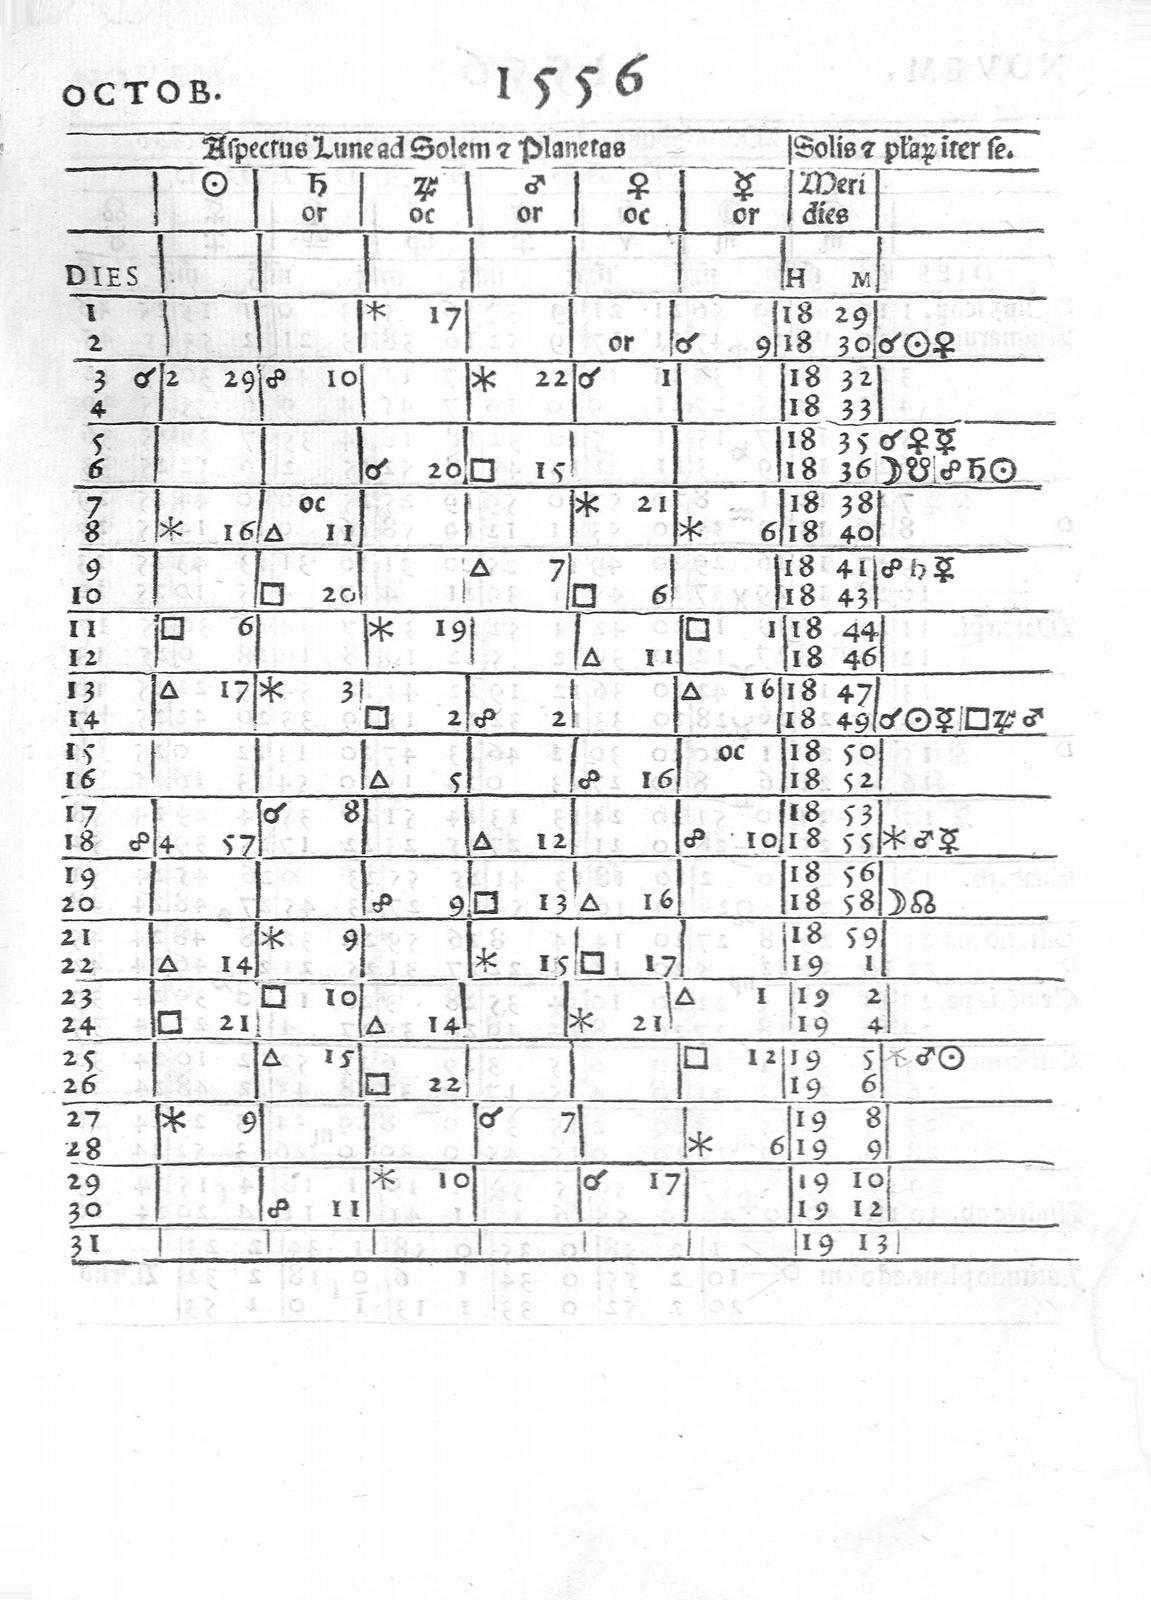 OCTOB. 1556
Aſpectus Lune ad Solem ⁊ Planetas Solis ⁊ płaꝝ iter ſe.
☉ ♄ ♃ ♂ ♀ ☿ Meri
or oc or oc or dies
DIES H M
1 ⚹ 17 18 29
2 or ☌ 9 18 30 ☌☉♀
3 ☌ 2 29 ☍ 10 ⚹ 22 ☌ 1 18 32
4 18 33
5 18 35 ☌♀☿
6 ☌ 20 □ 15 18 36 ☽☋ ☍♄☉
7 oc ⚹ 21 18 38
8 ⚹ 16 △ 11 ⚹ 6 18 40
9 △ 7 18 41 ☍♄☿
10 □ 20 □ 6 18 43
11 □ 6 ⚹ 19 □ 1 18 44
12 △ 11 18 46
13 △ 17 ⚹ 3 △ 16 18 47
14 □ 2 ☍ 2 18 49 ☌☉☿ □♃♂
15 oc 18 50
16 △ 5 ☍ 16 18 52
17 ☌ 8 18 53
18 ☍ 4 57 △ 12 ☍ 10 18 55 ⚹♂☿
19 18 56
20 ☍ 9 □ 13 △ 16 18 58 ☽☊
21 ⚹ 9 18 59
22 △ 14 ⚹ 15 □ 17 19 1
23 □ 10 △ 1 19 2
24 □ 21 △ 14 ⚹ 21 19 4
25 △ 15 □ 12 19 5 ⚹♂☉
26 □ 22 19 6
27 ⚹ 9 ☌ 7 19 8
28 ⚹ 6 19 9
29 ⚹ 10 ☌ 17 19 10
30 ☍ 11 19 12
31 19 13